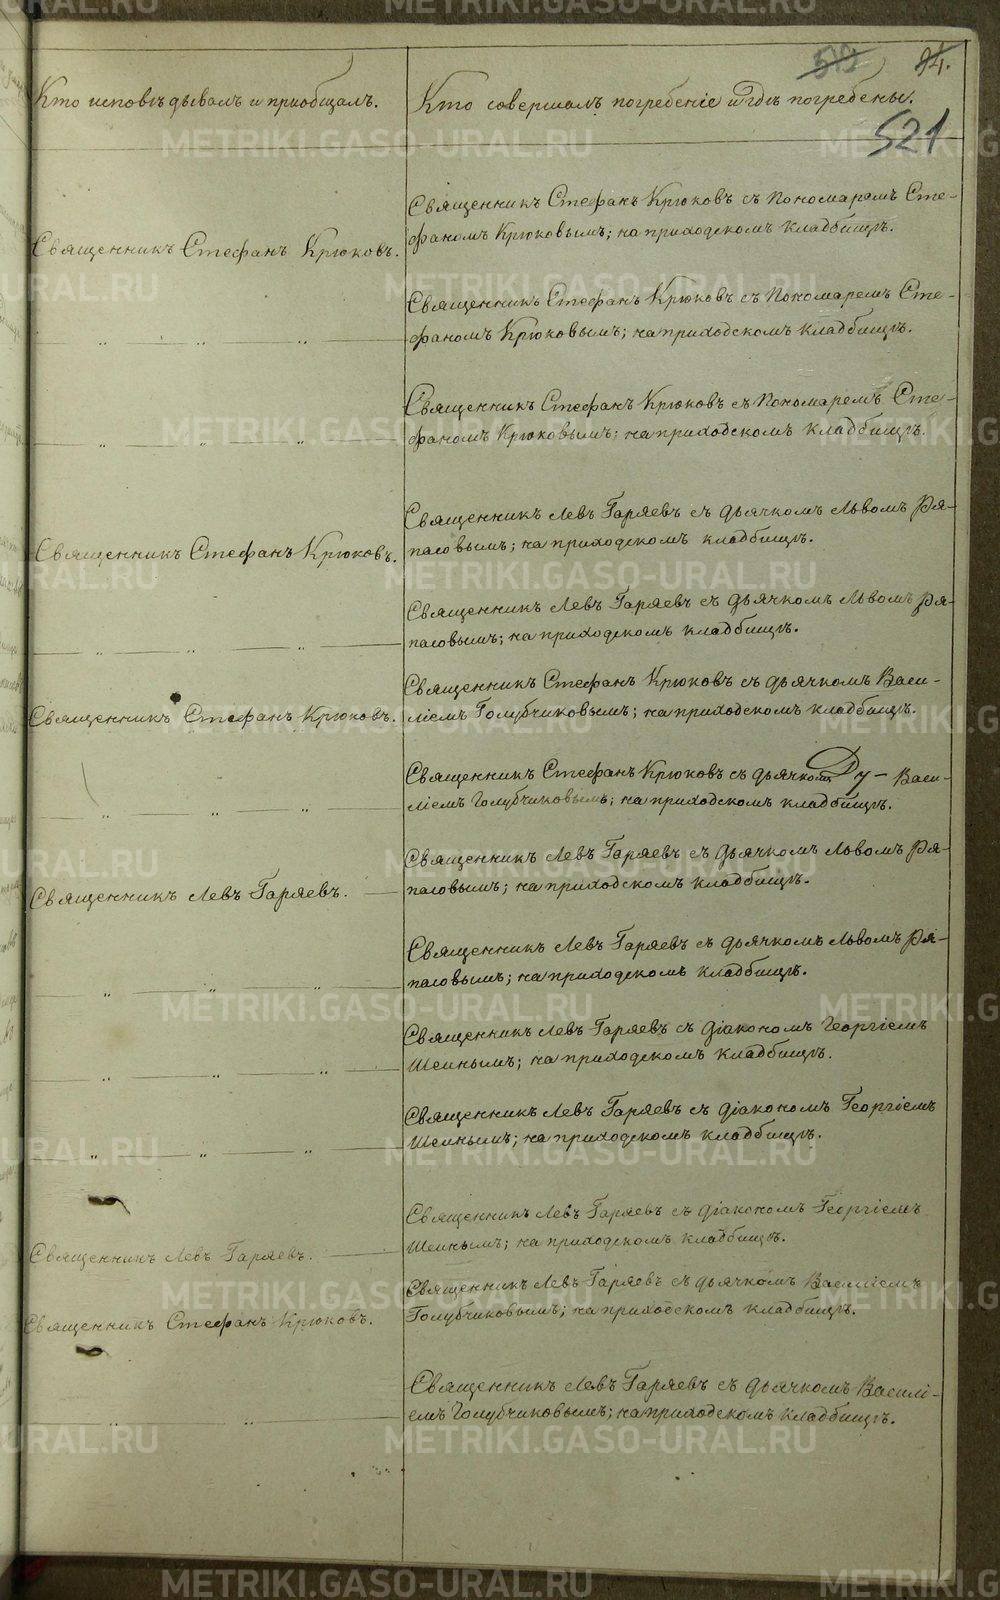 84.
521
Кто исповѣдывалъ и приобщалъ.
Кто совершалъ погребеніе и гдѣ погребены.
Священникъ Стефанъ Крюковъ съ Пономаремъ Сте-
фаномъ Крюковымъ; на приходскомъ кладбищѣ.
Священникъ Стефанъ Крюковъ.
Священникъ Стефанъ Крюковъ съ Пономаремъ Сте-
фаномъ Крюковымъ; на приходскомъ кладбищѣ.
„ „ „
Священникъ Стефанъ Крюковъ съ Пономаремъ Сте-
фаномъ Крюковымъ; на приходскомъ кладбищѣ.
„ „ „
Священникъ Левъ Гаряевъ съ дьячкомъ Львомъ Ря-
пасовымъ; на приходскомъ кладбищѣ.
Священникъ Стефанъ Крюковъ.
Священникъ Левъ Гаряевъ съ дьячкомъ Львомъ Ря-
пасовымъ; на приходскомъ кладбищѣ.
„ „ „
Священникъ Стефанъ Крюковъ съ дьячкомъ Васи-
ліемъ Голубчиковымъ; на приходскомъ кладбищѣ.
Священникъ Стефанъ Крюковъ.
Священникъ Стефанъ Крюковъ съ дьячкомъ Васи-
ліемъ Голубчиковымъ; на приходскомъ кладбищѣ.
„ „ „
Священникъ Левъ Гаряевъ съ дьячкомъ Львомъ Ря-
пасовымъ; на приходскомъ кладбищѣ.
Священникъ Левъ Гаряевъ.
Священникъ Левъ Гаряевъ съ дьячкомъ Львомъ Ря-
пасовымъ; на приходскомъ кладбищѣ.
„ „ „
Священникъ Левъ Гаряевъ съ діакономъ Георгіемъ
Шеинымъ; на приходскомъ кладбищѣ.
„ „ „
Священникъ Левъ Гаряевъ съ діакономъ Георгіемъ
Шеинымъ; на приходскомъ кладбищѣ.
„ „ „
Священникъ Левъ Гаряевъ съ діакономъ Георгіемъ
Шеинымъ; на приходскомъ кладбищѣ.
Священникъ Левъ Гаряевъ.
Священникъ Левъ Гаряевъ съ дьячкомъ Василіемъ
Голубчиковымъ; на приходскомъ кладбищѣ.
Священникъ Стефанъ Крюковъ.
Священникъ Левъ Гаряевъ съ дьячкомъ Василі-
емъ Голубчиковымъ; на приходскомъ кладбищѣ.
„ „
METRIKI.GASO-URAL.RU